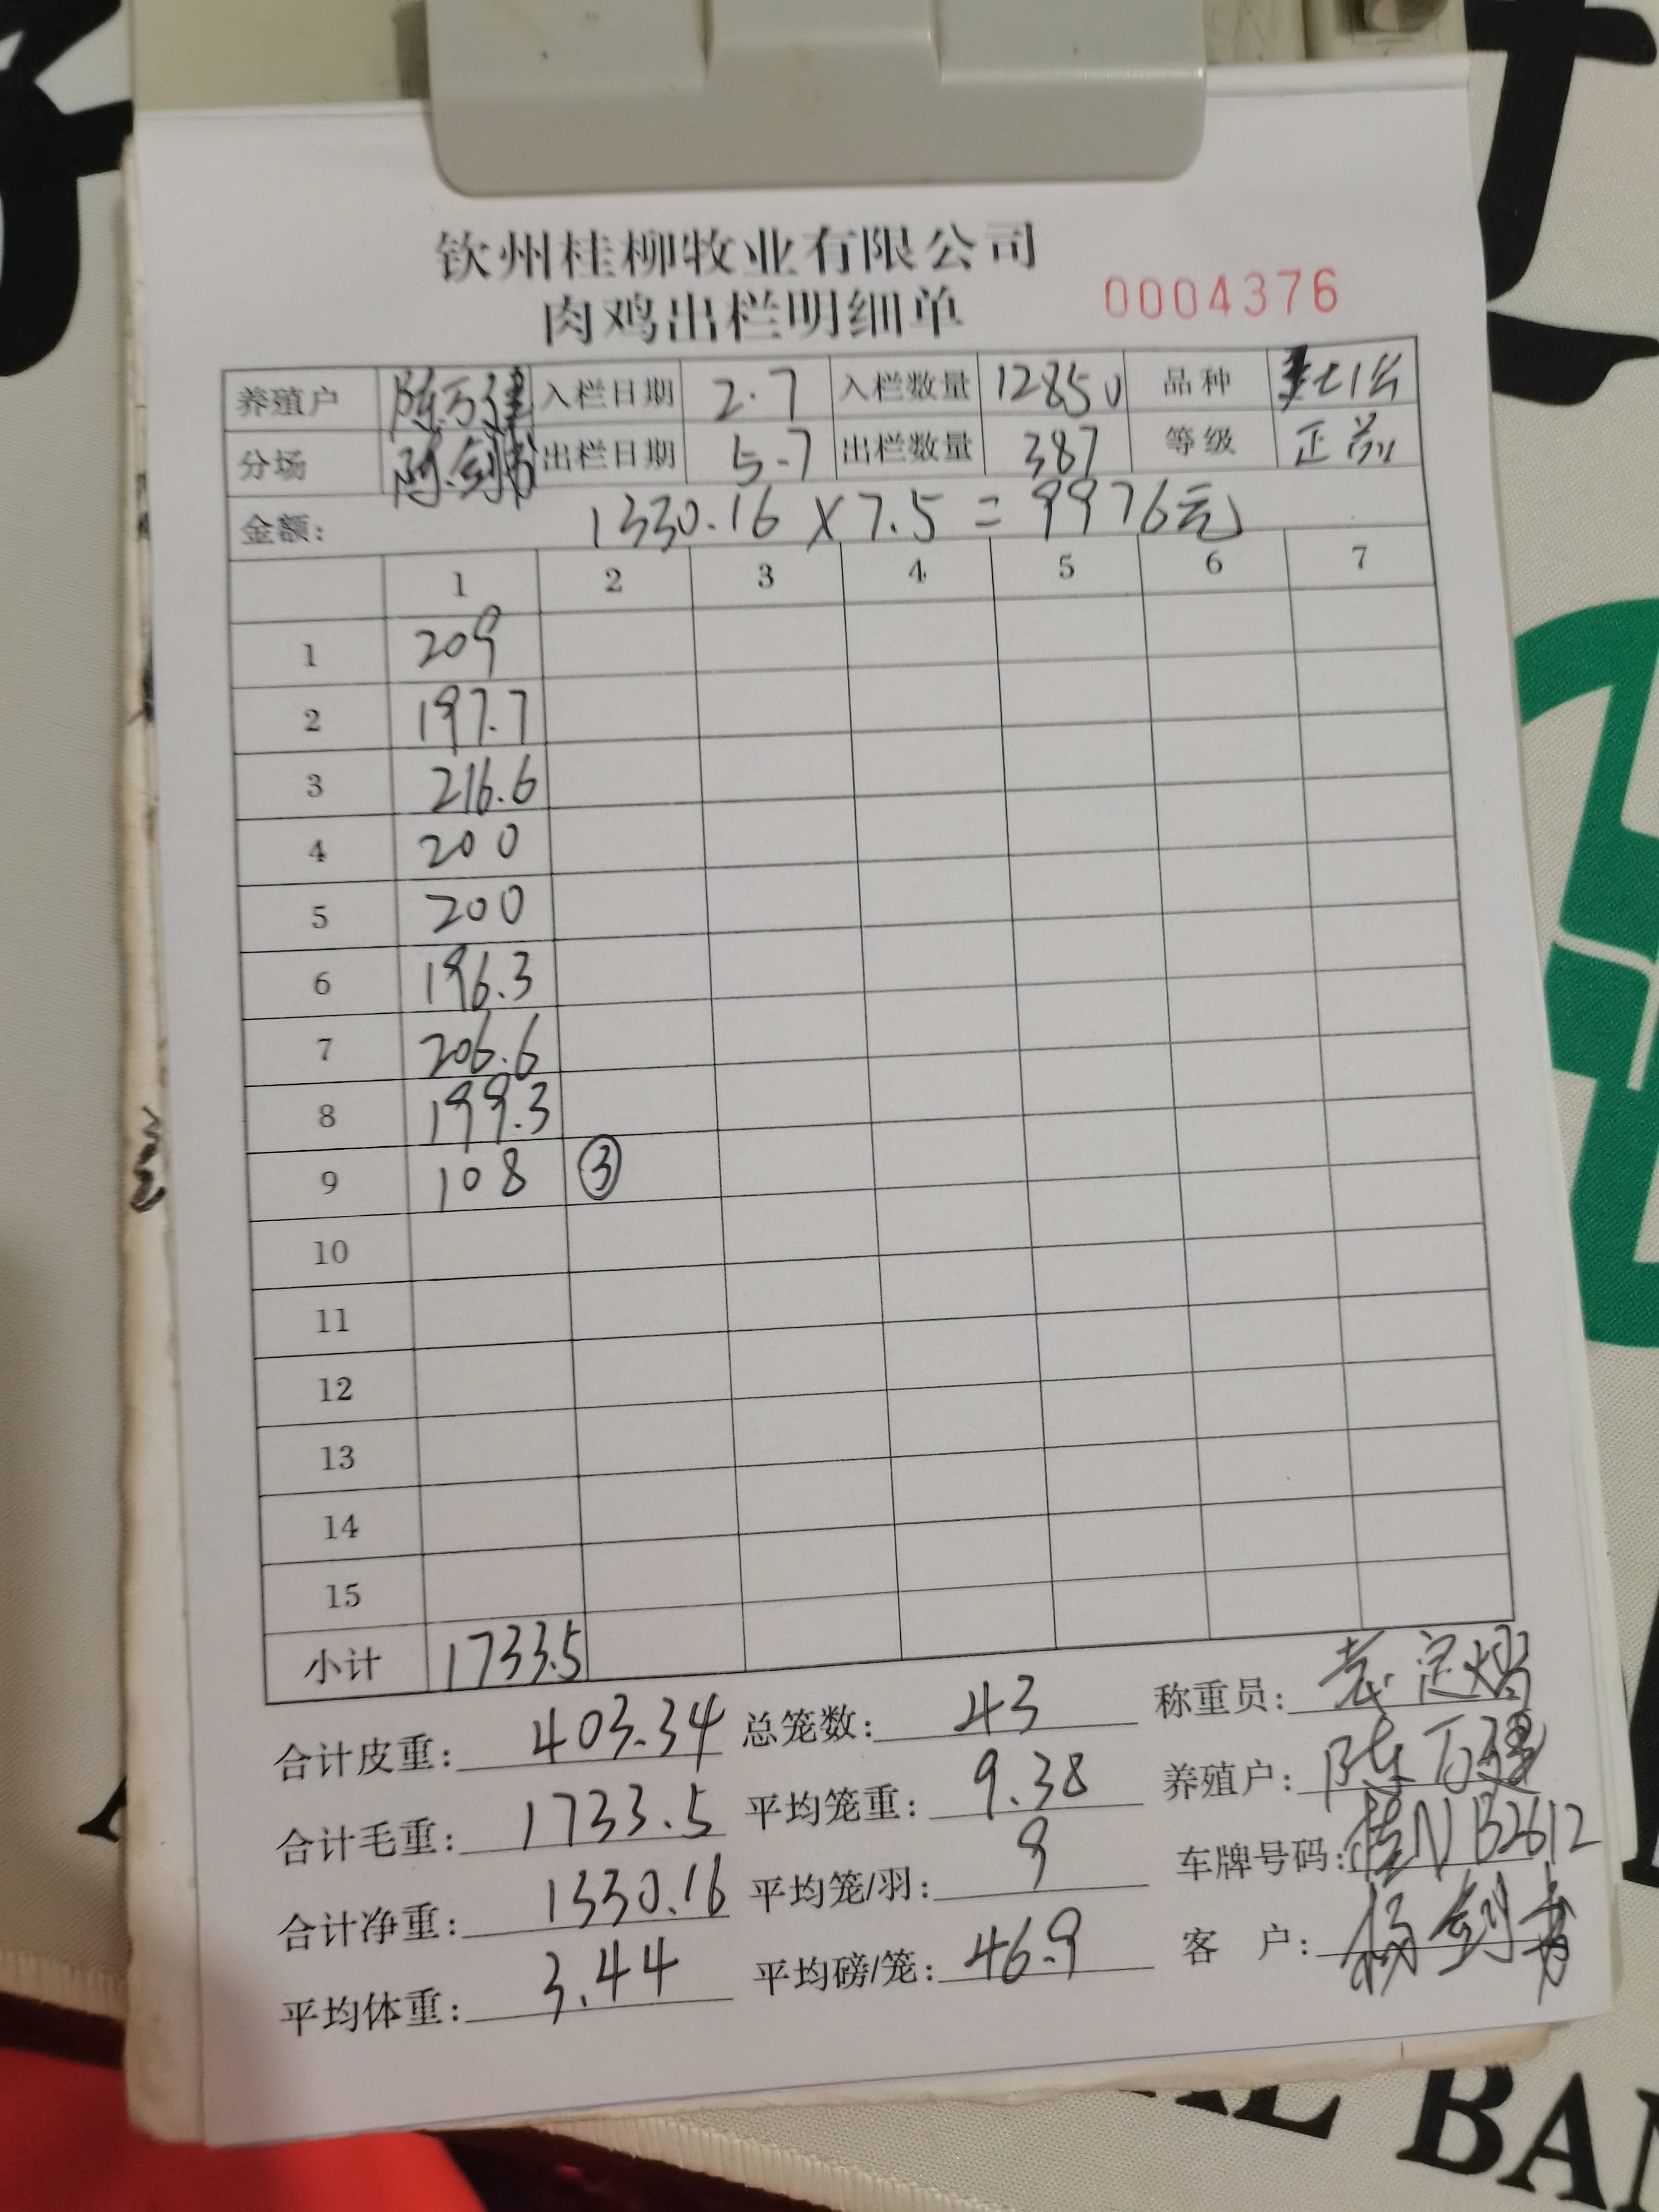 钦州桂柳牧业有限公司
肉鸡出栏明细单 0004376
养殖户 陈万建 入栏日期 2.7 入栏数量 12850 品种
分场 出栏日期 5-7 出栏数量 387 等级 正常
金额: 1330.16 × 7.5 = 9976元
1 2 3 4 5 6 7
1 209
2 197.7
3 216.6
4 200
5 200
6 196.3
7 206.6
8 199.3
9 108 ③
10
11
12
13
14
15
小计 1733.5
合计皮重: 403.34 总笼数: 43 称重员:
合计毛重: 1733.5 平均笼重: 9.38 养殖户: 陈万建
合计净重: 1330.16 平均笼/羽: 9 车牌号码: 桂N B2612
平均体重: 3.44 平均磅/笼: 46.9 客 户:
BAN